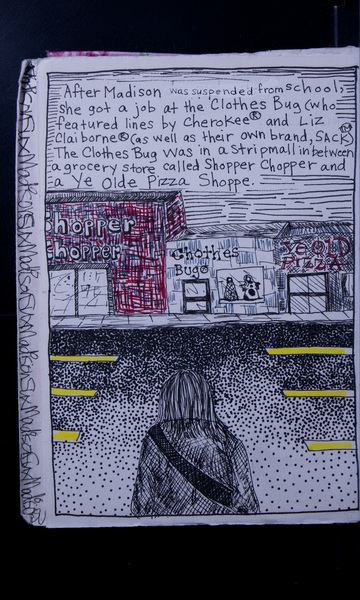 After Madison was suspended from school,
she got a job at the Clothes Bug (who
featured lines by Cherokee® and Liz
Claiborne® (as well as their own brand, SACK)
The Clothes Bug was in a stripmall in between
a grocery store called Shopper Chopper and
a Ye Olde Pizza Shoppe.
hopper
hopper
Clothes
Bug
Ye OLD
PIZZA